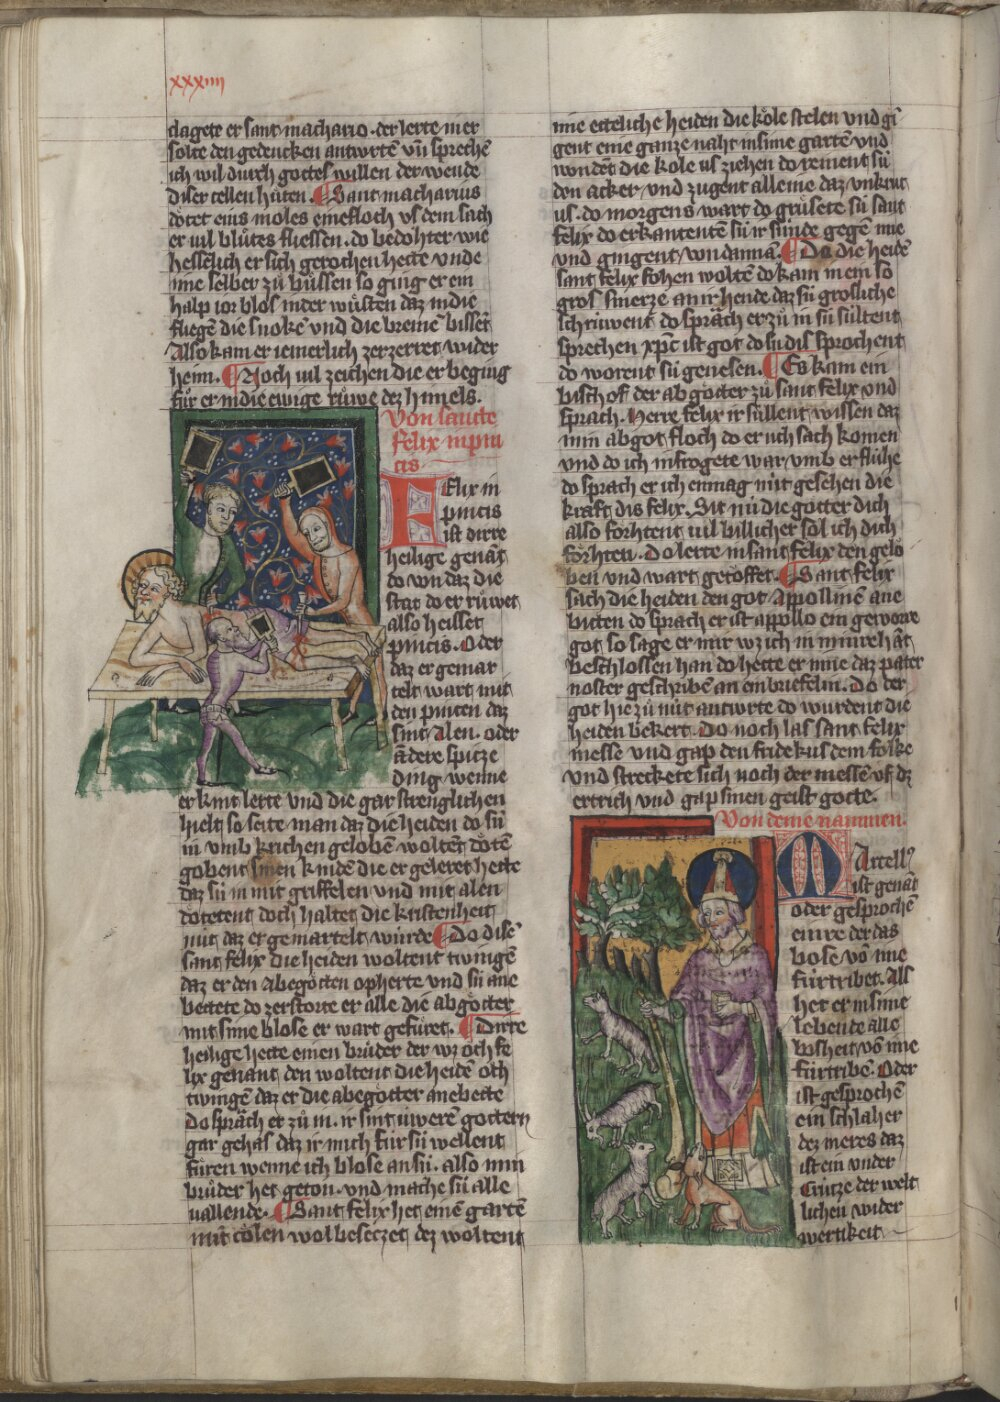 xxxiiii
clagete er sant machario · der lerte in er
solte den gedencken antwrtē vn̄ sprechē
ich wil durch gottes willen der wende
diser cellen hůten. ¶ Sant macharius
dôtet eins moles eine floch vf dem sach
er vil blůtes fliessen. do bedohter wie
hesselich er sich gerochen hette vnde
ime selber zů bůssen so ging er ein
halp ior blos in der wůsten daz in die
fliegē die snoke vnd die breme bissēt
Also kam er iemerlich zerzerret wider
heim. ¶ Noch vil zeichen die er beging
fůr er in die ewige růwe dez himels.
Von sancte
felix in pin
cis
FElix in
pincis
ist dirre
heilige genāt
do von daz die
stat do er růwet
also heisset
pincis. Oder
daz er gemar
telt wart mit
den pincen daz
sint alen. oder
ādere spicze
ding wenne
er kint lerte vnd die gar strenglichen
hielt so seite man daz die heiden do sü
in vmb krichen geloben woltē dôten
gobent sinen kindē die er geleret hette
daz sü in mit griffelen vnd mit alen
dôtetent doch haltet die kristenheit
nüt daz er gemartelt würde ¶ Do disē
sant felix die heiden woltent twingē
daz er den abegôtten opherte vnd sü ane
bettete do zerstorte er alle die abgôtter
mit sime blose er wart gefůret. ¶ Dirre
heilige hette einen brůder der wz och fe
lix genant den woltent die heidē och
twingē daz er die abegôtter anebette
do sprach er zů in. ir sint üwerē gottern
gar gehas daz ir mich für sü wellent
fůren wenne ich blose an sü. also min
brůder het geton. vnd mache sü alle
vallende. ¶ Sant felix het einē gartē
mit côlen wol beseczet dez woltent
ime etteliche heiden die kôle stelen vnd gi
gent eine ganze naht in sime gartē vnd
wondēt die kole us ziehen do rement sü
den acker vnd zugent alleine daz vnkrut
us. do morgens wart do grůsete sü sant
felix do erkantentē sü ir sünde gegē ime
vnd gingent von dannā. ¶ Do die heidē
sant felix fohen woltē do kam in ein so
gros smerze an ir hende daz sü grosliche
schruwent do sprach er zů in sü sültent
sprechen xp̄c ist got do sü dis sprochent
do worent sü genesen. ¶ Es kam ein
bischof der abgôtter zů sant felix vnd
sprach. Herre felix ir süllent wissen daz
min abgot floch do er uch sach komen
vnd do ich in frogete war vmb er flühe
do sprach er ich enmag nüt gesehen die
kraft dis felix. Sit nü die gôtter dich
also fôrhtent vil billicher sol ich dich
fôrhten. Do lerte in sant felix den gelô
ben vnd wart getôffet. ¶ Sant felix
sach die heiden den got Appollinē ane
betten do sprach er ist appollo ein gewore
got so sage er mir wz ich in minre hāt
beschlossen han do hette er ime daz pater
noster geschribē an ein briefelin. Do der
got hie zů nüt antwrte do wurdent die
heiden bekert. Do noch las sant felix
messe vnd gap den fride kus dem folke
vnd streckete sich noch der messē vf dz
ertrich vnd gap sinen geist gotte.
Von deme nammen.
MArcell9
ist genāt
oder gesprochē
einre der das
bose vō ime
fürtribet. Als
het er in sime
lebende alle
bosheit vō ime
fürtribē. Oder
ist gesprochē
ein schlaher
dez meres daz
ist ein vnder
trücze der welt
lichen wider
wertikeit